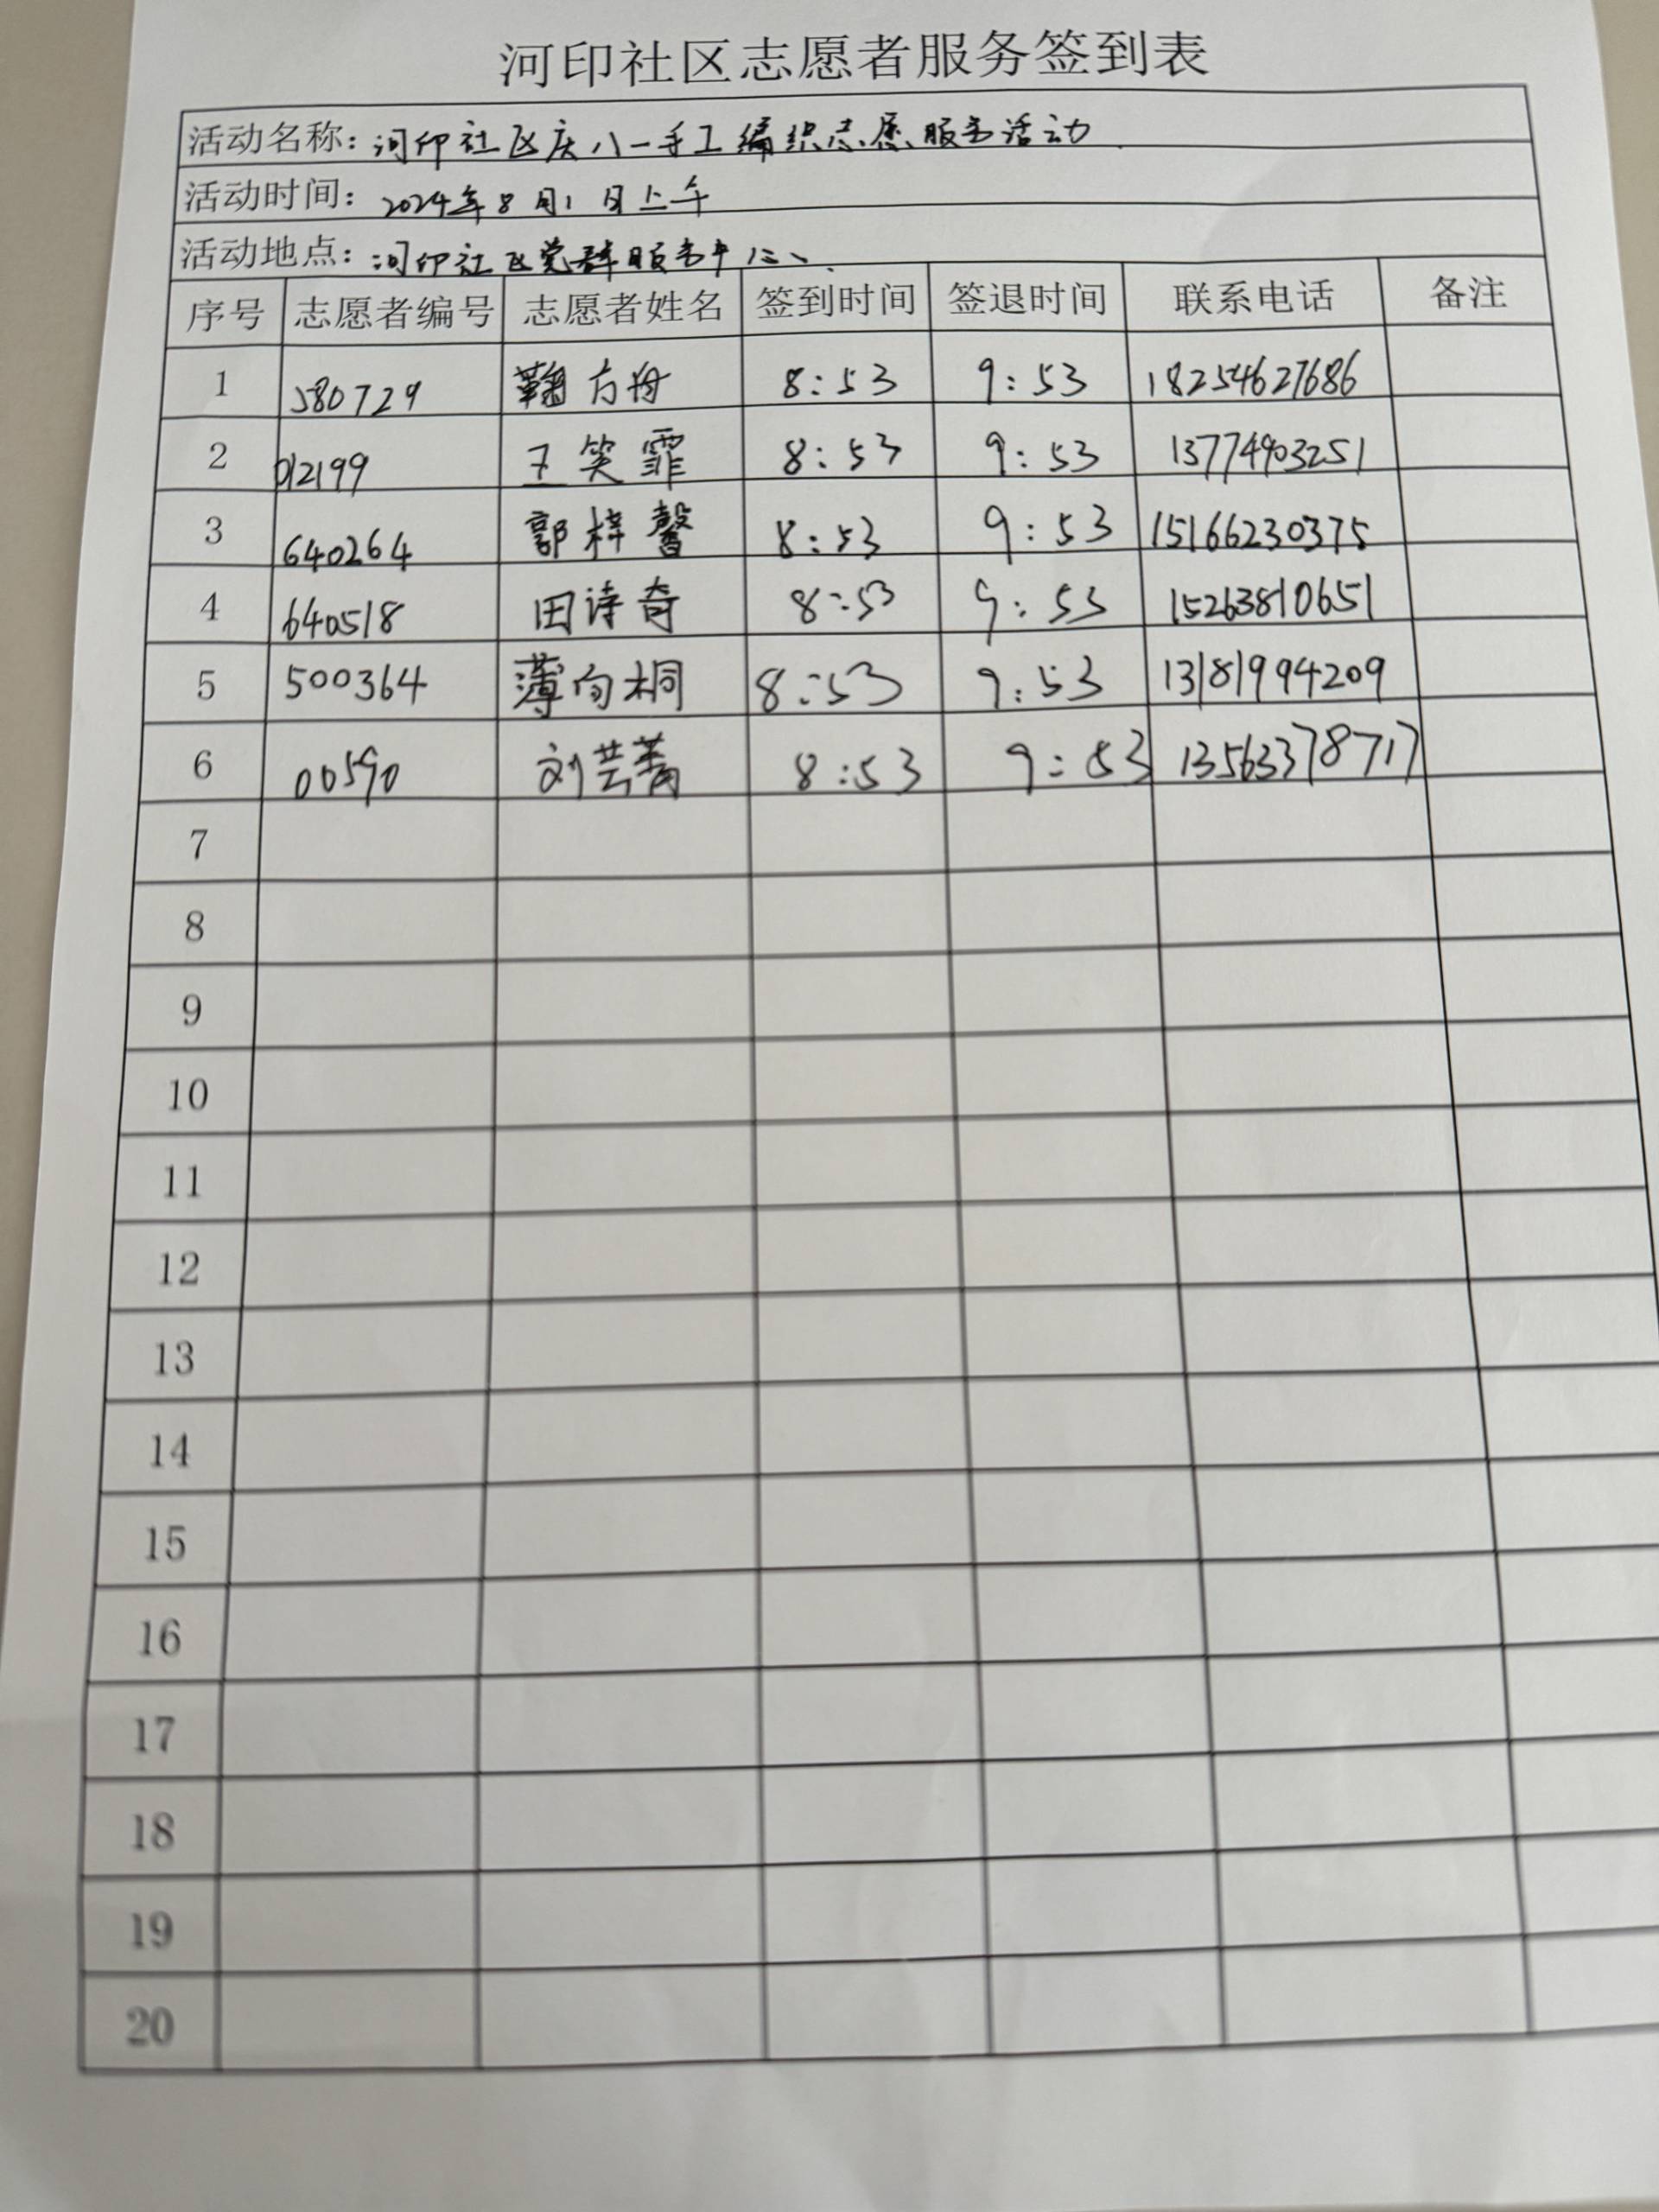 河印社区志愿者服务签到表
活动名称：河印社区庆八一手工编织志愿服务活动
活动时间：2024年8月1日上午
活动地点：河印社区党群服务中心
序号 志愿者编号 志愿者姓名 签到时间 签退时间 联系电话 备注
1 580729 鞠方舟 8:53 9:53 18254627686
2 012199 王笑霏 8:53 9:53 13774903251
3 640264 郭梓馨 8:53 9:53 15166230375
4 640518 田诗奇 8:53 9:53 15263810651
5 500364 薄向桐 8:53 9:53 13181994209
6 00590 刘芸菁 8:53 9:53 13563378717
7
8
9
10
11
12
13
14
15
16
17
18
19
20